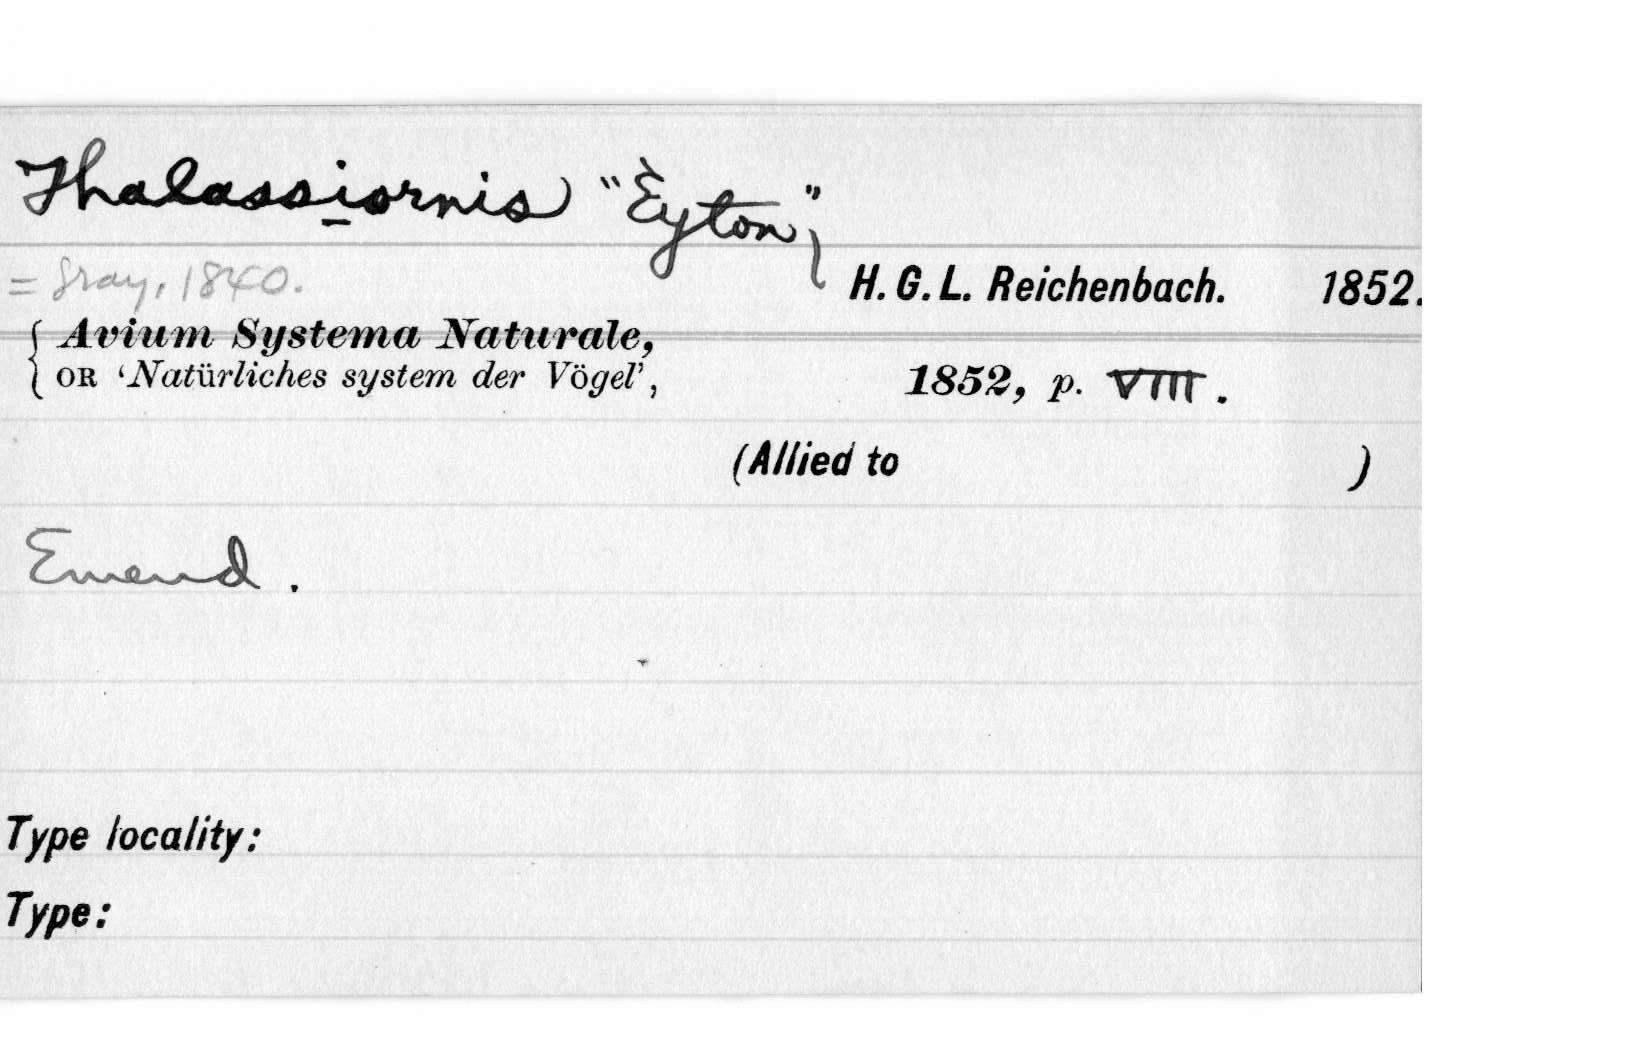 Thalassiornis "Eyton"
= Gray, 1840.
H. G. L. Reichenbach. 1852.
Avium Systema Naturale,
OR ‘Natürliches system der Vögel’, 1852, p. VIII.
(Allied to )
Emend.
Type locality:
Type: